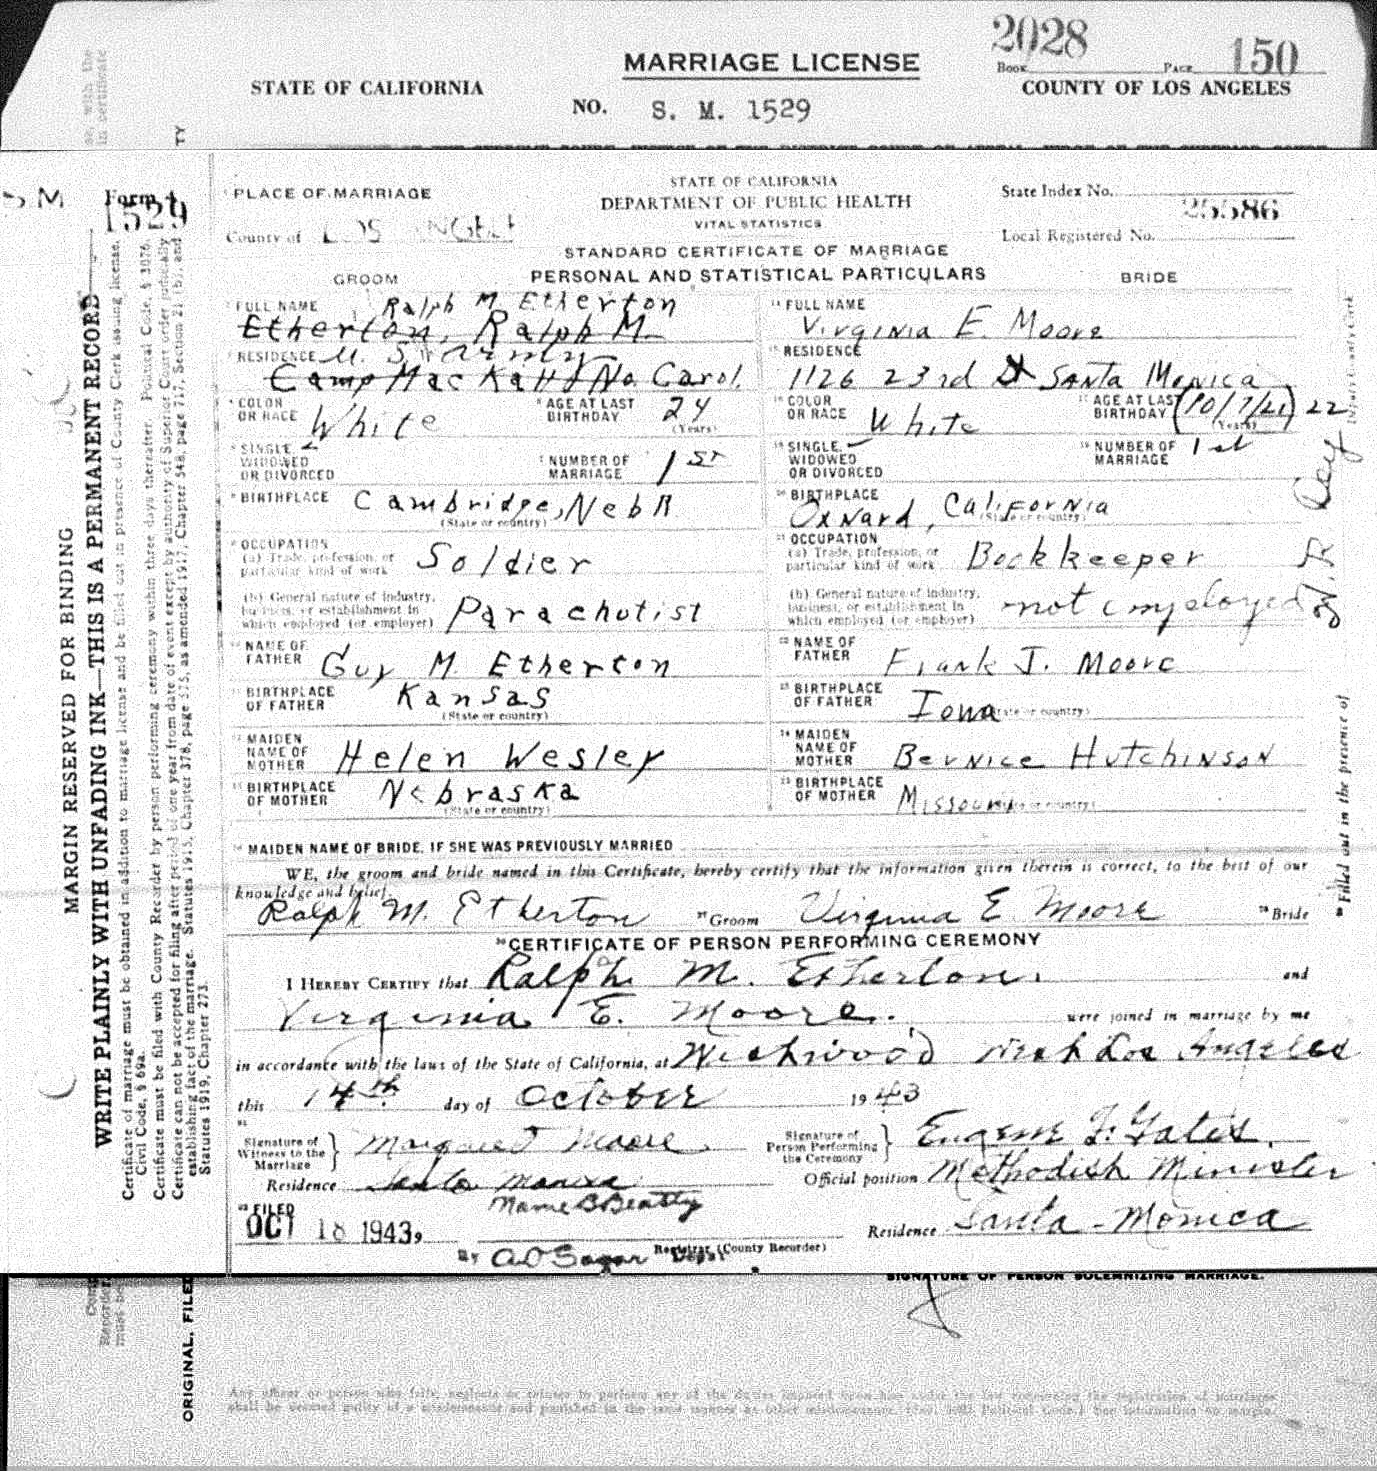 2028 150
MARRIAGE LICENSE
Book Page
STATE OF CALIFORNIA COUNTY OF LOS ANGELES
NO. S. M. 1529
S M Form 1
1529
PLACE OF MARRIAGE
County of LOS ANGELES
STATE OF CALIFORNIA
DEPARTMENT OF PUBLIC HEALTH
VITAL STATISTICS
STANDARD CERTIFICATE OF MARRIAGE
State Index No.
25586
Local Registered No.
GROOM PERSONAL AND STATISTICAL PARTICULARS BRIDE
FULL NAME Ralph M. Etherton
Etherton, Ralph M.
FULL NAME
Virginia E. Moore
RESIDENCE U. S. Army
Camp Mackall No. Carol.
RESIDENCE
1126 23rd St Santa Monica
COLOR OR RACE White AGE AT LAST BIRTHDAY 24 (Years)
COLOR OR RACE White AGE AT LAST BIRTHDAY (10/7/21) 22 (Years)
SINGLE, WIDOWED OR DIVORCED NUMBER OF MARRIAGE 1st
SINGLE, WIDOWED OR DIVORCED NUMBER OF MARRIAGE 1st
BIRTHPLACE Cambridge, Nebr (State or country)
BIRTHPLACE Oxnard, California (State or country)
OCCUPATION
(a) Trade, profession, or particular kind of work Soldier
OCCUPATION
(a) Trade, profession, or particular kind of work Bookkeeper
(b) General nature of industry, business, or establishment in which employed (or employer) Parachutist
(b) General nature of industry, business, or establishment in which employed (or employer) not employed
NAME OF FATHER Guy M. Etherton
NAME OF FATHER Frank J. Moore
BIRTHPLACE OF FATHER Kansas (State or country)
BIRTHPLACE OF FATHER Iowa (State or country)
MAIDEN NAME OF MOTHER Helen Wesley
MAIDEN NAME OF MOTHER Bernice Hutchinson
BIRTHPLACE OF MOTHER Nebraska (State or country)
BIRTHPLACE OF MOTHER Missouri (State or country)
MAIDEN NAME OF BRIDE, IF SHE WAS PREVIOUSLY MARRIED
WE, the groom and bride named in this Certificate, hereby certify that the information given therein is correct, to the best of our
knowledge and belief.
Ralph M. Etherton Groom Virginia E Moore Bride
CERTIFICATE OF PERSON PERFORMING CEREMONY
I HEREBY CERTIFY that Ralph M. Etherton and
Virginia E. Moore were joined in marriage by me
in accordance with the laws of the State of California, at Westwood West Los Angeles
this 14th day of October 1943
Signature of Witness to the Marriage } Margaret Moore
Signature of Person Performing the Ceremony } Eugene F. Gates.
Residence Santa Monica
Official position Methodist Minister
FILED
OCT 18 1943
Mame B Beatty
Registrar (County Recorder)
Residence Santa-Monica
MARGIN RESERVED FOR BINDING
WRITE PLAINLY WITH UNFADING INK—THIS IS A PERMANENT RECORD
Certificate of marriage must be obtained in addition to marriage license and be filled out in presence of County Clerk issuing license.
Civil Code, § 69a.
Certificate must be filed with County Recorder by person performing ceremony within three days thereafter. Political Code, § 3076.
Certificate can not be accepted for filing after period of one year from date of event except by authority of Superior Court order judicially
establishing fact of the marriage. Statutes 1915, Chapter 378, page 575, as amended 1917, Chapter 548, page 717, Section 21 (b), and
Statutes 1919, Chapter 273.
Filled out in the presence of
Deputy County Clerk
ORIGINAL, FILED
SIGNATURE OF PERSON SOLEMNIZING MARRIAGE.